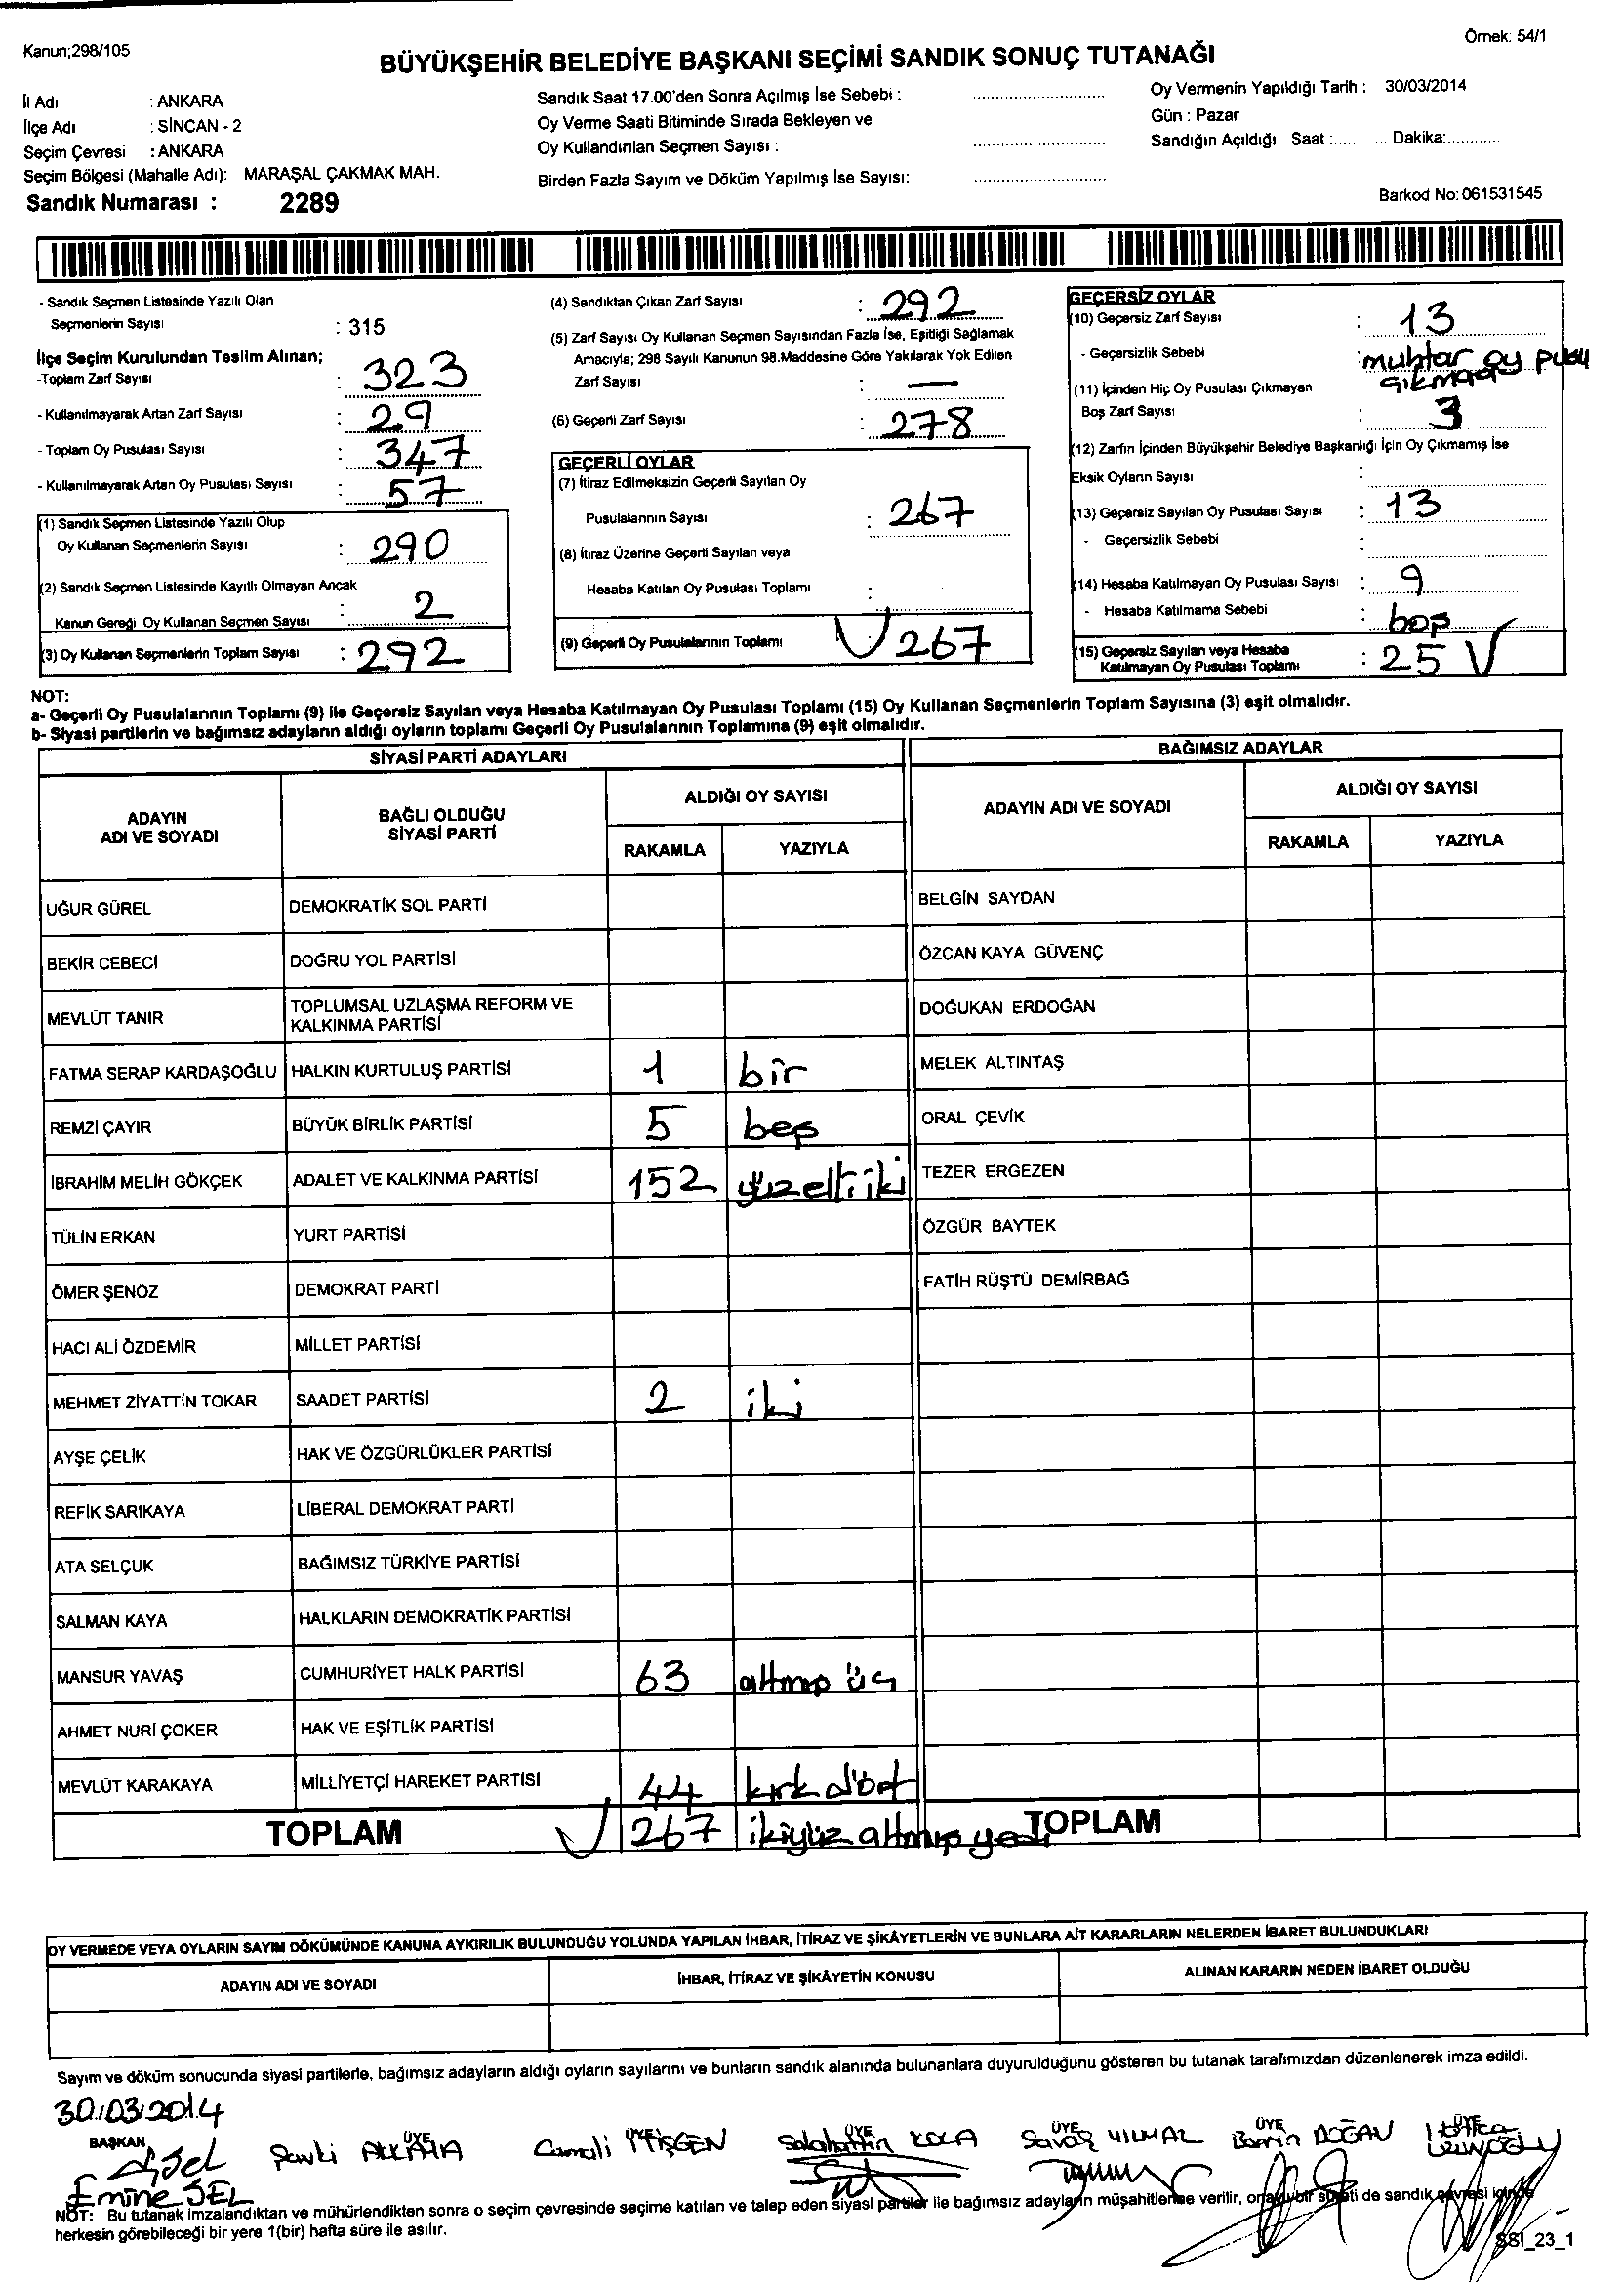 Kanun;298/105
Örnek: 54/1
BÜYÜKŞEHİR BELEDİYE BAŞKANI SEÇİMİ SANDIK SONUÇ TUTANAĞI
İl Adı : ANKARA
İlçe Adı : SİNCAN - 2
Seçim Çevresi : ANKARA
Seçim Bölgesi (Mahalle Adı): MARAŞAL ÇAKMAK MAH.
Sandık Numarası : 2289
Sandık Saat 17.00'den Sonra Açılmış İse Sebebi :
Oy Verme Saati Bitiminde Sırada Bekleyen ve
Oy Kullandırılan Seçmen Sayısı :
Birden Fazla Sayım ve Döküm Yapılmış İse Sayısı:
Oy Vermenin Yapıldığı Tarih : 30/03/2014
Gün : Pazar
Sandığın Açıldığı Saat :............ Dakika:............
Barkod No: 061531545
- Sandık Seçmen Listesinde Yazılı Olan
Seçmenlerin Sayısı : 315
İlçe Seçim Kurulundan Teslim Alınan;
-Toplam Zarf Sayısı : 323
- Kullanılmayarak Artan Zarf Sayısı : 29
- Toplam Oy Pusulası Sayısı : 347
- Kullanılmayarak Artan Oy Pusulası Sayısı : 57
(1) Sandık Seçmen Listesinde Yazılı Olup
Oy Kullanan Seçmenlerin Sayısı : 290
(2) Sandık Seçmen Listesinde Kayıtlı Olmayan Ancak
Kanun Gereği Oy Kullanan Seçmen Sayısı : 2
(3) Oy Kullanan Seçmenlerin Toplam Sayısı : 292
(4) Sandıktan Çıkan Zarf Sayısı : 292
(5) Zarf Sayısı Oy Kullanan Seçmen Sayısından Fazla İse, Eşitliği Sağlamak
Amacıyla; 298 Sayılı Kanunun 98.Maddesine Göre Yakılarak Yok Edilen
Zarf Sayısı : —
(6) Geçerli Zarf Sayısı : 278
GEÇERLİ OYLAR
(7) İtiraz Edilmeksizin Geçerli Sayılan Oy
Pusulalarının Sayısı : 267
(8) İtiraz Üzerine Geçerli Sayılan veya
Hesaba Katılan Oy Pusulası Toplamı :
(9) Geçerli Oy Pusulalarının Toplamı : 267
GEÇERSİZ OYLAR
(10) Geçersiz Zarf Sayısı : 13
- Geçersizlik Sebebi : muhtar oy pusu
çıkmadı
(11) İçinden Hiç Oy Pusulası Çıkmayan
Boş Zarf Sayısı : 3
(12) Zarfın İçinden Büyükşehir Belediye Başkanlığı İçin Oy Çıkmamış İse
Eksik Oyların Sayısı :
(13) Geçersiz Sayılan Oy Pusulası Sayısı : 13
- Geçersizlik Sebebi :
(14) Hesaba Katılmayan Oy Pusulası Sayısı : 9
- Hesaba Katılmama Sebebi : boş
(15) Geçersiz Sayılan veya Hesaba
Katılmayan Oy Pusulası Toplamı : 25
NOT:
a- Geçerli Oy Pusulalarının Toplamı (9) ile Geçersiz Sayılan veya Hesaba Katılmayan Oy Pusulası Toplamı (15) Oy Kullanan Seçmenlerin Toplam Sayısına (3) eşit olmalıdır.
b- Siyasi partilerin ve bağımsız adayların aldığı oyların toplamı Geçerli Oy Pusulalarının Toplamına (9) eşit olmalıdır.
SİYASİ PARTİ ADAYLARI
ADAYIN ADI VE SOYADI BAĞLI OLDUĞU SİYASİ PARTİ ALDIĞI OY SAYISI
RAKAMLA YAZIYLA
UĞUR GÜREL DEMOKRATİK SOL PARTİ
BEKİR CEBECİ DOĞRU YOL PARTİSİ
MEVLÜT TANIR TOPLUMSAL UZLAŞMA REFORM VE KALKINMA PARTİSİ
FATMA SERAP KARDAŞOĞLU HALKIN KURTULUŞ PARTİSİ 1 bir
REMZİ ÇAYIR BÜYÜK BİRLİK PARTİSİ 5 beş
İBRAHİM MELİH GÖKÇEK ADALET VE KALKINMA PARTİSİ 152 yüzelli iki
TÜLİN ERKAN YURT PARTİSİ
ÖMER ŞENÖZ DEMOKRAT PARTİ
HACI ALİ ÖZDEMİR MİLLET PARTİSİ
MEHMET ZİYATTİN TOKAR SAADET PARTİSİ 2 iki
AYŞE ÇELİK HAK VE ÖZGÜRLÜKLER PARTİSİ
REFİK SARIKAYA LİBERAL DEMOKRAT PARTİ
ATA SELÇUK BAĞIMSIZ TÜRKİYE PARTİSİ
SALMAN KAYA HALKLARIN DEMOKRATİK PARTİSİ
MANSUR YAVAŞ CUMHURİYET HALK PARTİSİ 63 altmış üç
AHMET NURİ ÇOKER HAK VE EŞİTLİK PARTİSİ
MEVLÜT KARAKAYA MİLLİYETÇİ HAREKET PARTİSİ 44 kırk dört
TOPLAM 267 ikiyüz altmış yedi
BAĞIMSIZ ADAYLAR
ADAYIN ADI VE SOYADI ALDIĞI OY SAYISI
RAKAMLA YAZIYLA
BELGİN SAYDAN
ÖZCAN KAYA GÜVENÇ
DOĞUKAN ERDOĞAN
MELEK ALTINTAŞ
ORAL ÇEVİK
TEZER ERGEZEN
ÖZGÜR BAYTEK
FATİH RÜŞTÜ DEMİRBAĞ
TOPLAM
OY VERMEDE VEYA OYLARIN SAYIM DÖKÜMÜNDE KANUNA AYKIRILIK BULUNDUĞU YOLUNDA YAPILAN İHBAR, İTİRAZ VE ŞİKÂYETLERİN VE BUNLARA AİT KARARLARIN NELERDEN İBARET BULUNDUKLARI
ADAYIN ADI VE SOYADI İHBAR, İTİRAZ VE ŞİKÂYETİN KONUSU ALINAN KARARIN NEDEN İBARET OLDUĞU
Sayım ve döküm sonucunda siyasi partilerle, bağımsız adayların aldığı oyların sayılarını ve bunların sandık alanında bulunanlara duyurulduğunu gösteren bu tutanak tarafımızdan düzenlenerek imza edildi.
30/03/2014
BAŞKAN ÜYE ÜYE ÜYE ÜYE ÜYE ÜYE
Selahattin KOCA Savaş YILMAZ DOĞAN
Emine SEL
NOT: Bu tutanak imzalandıktan ve mühürlendikten sonra o seçim çevresinde seçime katılan ve talep eden siyasi partiler ile bağımsız adayların müşahitlerine verilir, onaylı bir sureti de sandık çevresi içinde
herkesin görebileceği bir yere 1(bir) hafta süre ile asılır.
SSI_23_1